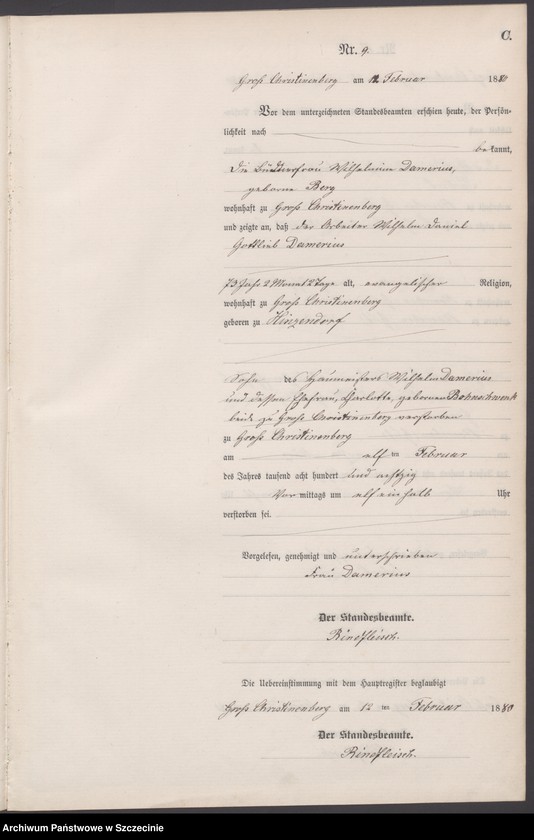 C.
Nr. 9.
Groß Christinenberg am 12. Februar 1880
Vor dem unterzeichneten Standesbeamten erschien heute, der Persön-
lichkeit nach
bekannt,
die Wilhelmine Damerius,
geborne Berg
wohnhaft zu Groß Christinenberg
und zeigte an, daß der Arbeiter Wilhelm Daniel
Gottlieb Damerius
73 Jahr 2 Monat 2 Tage alt, evangelischer Religion,
wohnhaft zu Groß Christinenberg
geboren zu Hinzendorf
Sohn des Wilhelm Damerius
und dessen Ehefrau, Charlotte, gebornen
beide zu Groß Christinenberg verstorben
zu Groß Christinenberg
am elf ten Februar
des Jahres tausend acht hundert und achtzig
Vor mittags um elf einhalb Uhr
verstorben sei.
Vorgelesen, genehmigt und unterschrieben
Frau Damerius
Der Standesbeamte.
Rindfleisch.
Die Uebereinstimmung mit dem Hauptregister beglaubigt
Groß Christinenberg am 12 ten Februar 1880
Der Standesbeamte.
Rindfleisch.
Archiwum Państwowe w Szczecinie